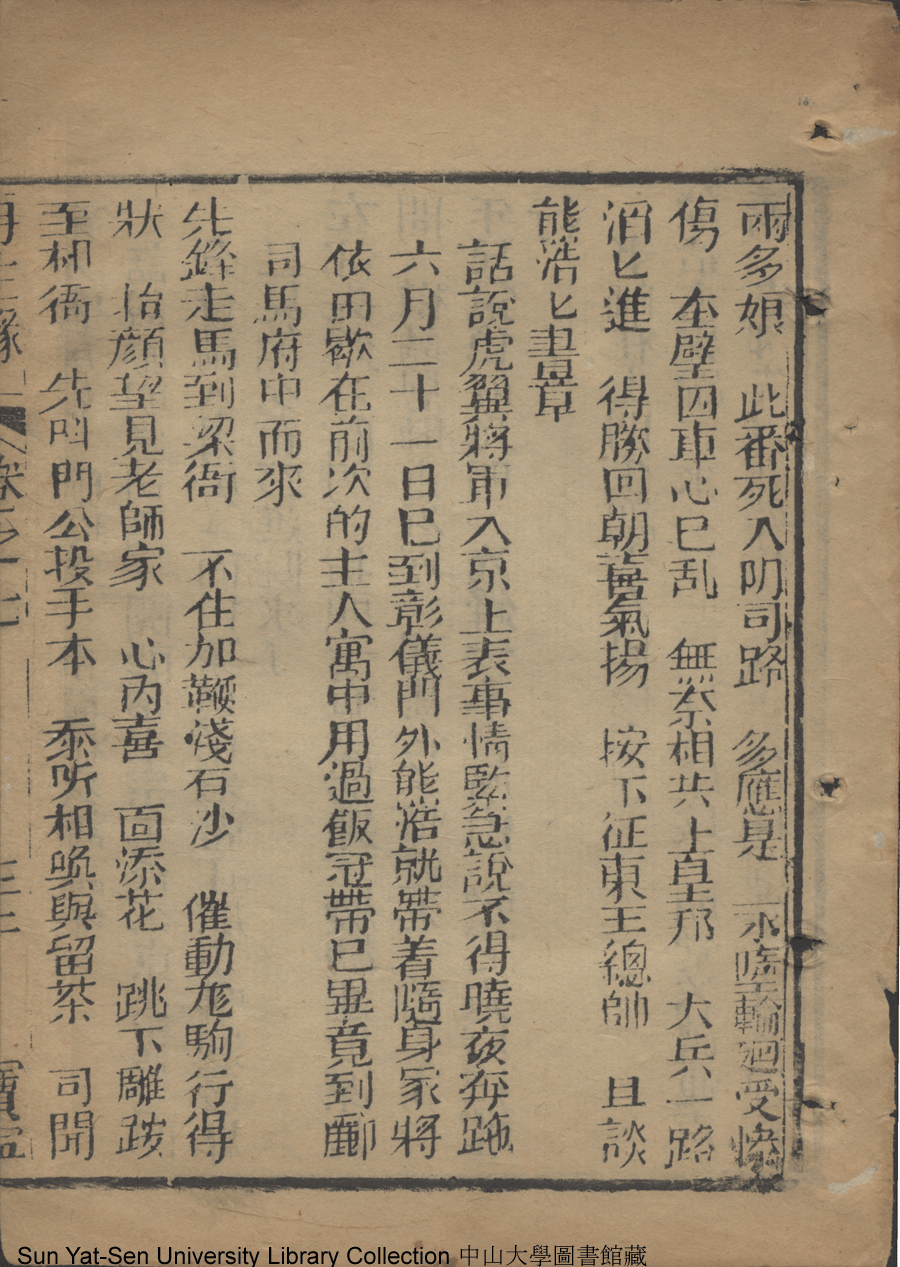 兩多娘　此番死入叨司路　多應是　永墮輪廻受慘
傷　本壁囚車心已乱　無奈相共上皇邦　大兵一路
洒匕進　得勝回朝喜氣揚　按下征東王總帥　且談
熊浩匕書章
話說虎翼將軍入京上表事情緊急說不得曉夜奔跑
六月二十一日已到彰儀門外熊浩就帶着隨身家將
依旧歇在前次的主人寓中用過飯冠帶已畢竟到酈
司馬府中而來
先鋒走馬到梁衙　不住加鞭淺石沙　催動龙駒行得
狀　怡顏望見老師家　心內喜　面添花　跳下雕鞍
至相衙　先叫門公投手本　忝听相喚與留茶　司閽
再生緣　卷之七
Sun Yat-Sen University Library Collection 中山大學圖書館藏